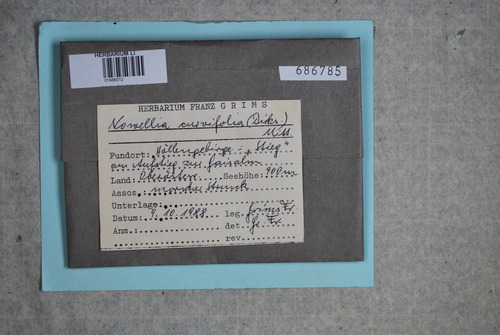 HERBARIUM LI
686785
HERBARIUM FRANZ GRIMS
Nowellia curvifolia (Dicks.)
Mitt
Fundort: Höllengebirge: "Stieg"
am Aufstieg zur
Land: Oberösterr. Seehöhe: 900m
Assoz.: morscher Strunk
Unterlage:
Datum: 9.10.1988 leg. Grims Fr.
Anm.: det. Gr. Fr.
rev.